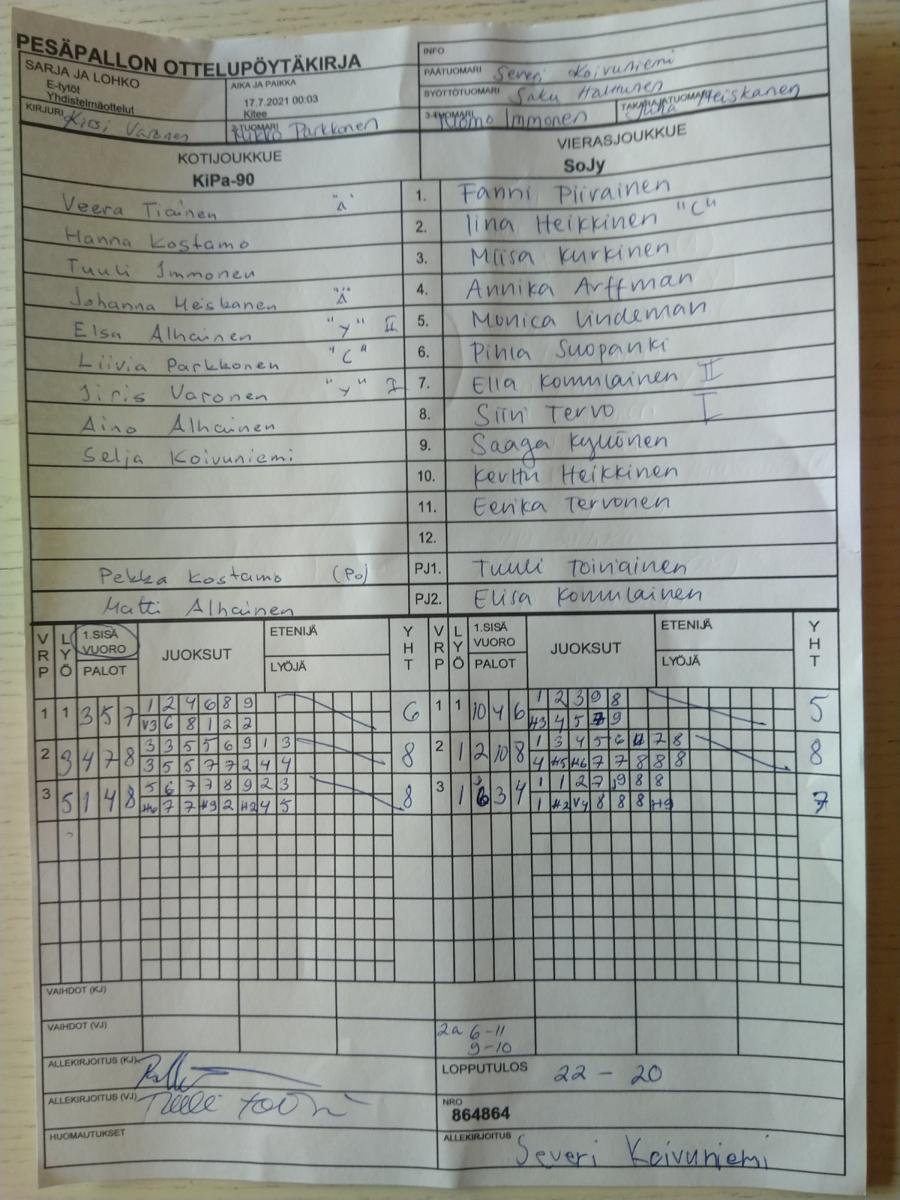 PESÄPALLON OTTELUPÖYTÄKIRJA
INFO
SARJA JA LOHKO
E-tytöt
Yhdistelmäottelut
AIKA JA PAIKKA
17.7.2021 00:03
Kitee
PÄÄTUOMARI Severi Koivuniemi
SYÖTTÖTUOMARI Saku Halttunen
KIRJURI Kirsi Varonen
2-TUOMARI Mikko Parkkonen
3-TUOMARI Immonen
TAKARAJATUOMARI Juha Heiskanen
KOTIJOUKKUE
KiPa-90
VIERASJOUKKUE
SoJy
Veera Tiainen "Ä" 1. Fanni Piirainen
Hanna Kostamo 2. Iina Heikkinen "C"
Tuuli Immonen 3. Miisa Kurkinen
Johanna Heiskanen "Ä" 4. Annika Arffman
Elsa Alhainen "Y" II 5. Monica Lindeman
Liivia Parkkonen "C" 6. Pinla Suopanki
Iiris Varonen "Y" I 7. Ella Komulainen II
Aino Alhainen 8. Siiri Tervo I
Selja Koivuniemi 9. Saaga Kyllönen
10. Kerttu Heikkinen
11. Eerika Tervonen
12.
Pekka Kostamo (Po) PJ1. Tuuli Toiviainen
Matti Alhainen PJ2. Elisa Komulainen
VRP LYÖ 1.SISÄ VUORO PALOT JUOKSUT ETENIJÄ LYÖJÄ YHT VRP LYÖ 1.SISÄ VUORO PALOT JUOKSUT ETENIJÄ LYÖJÄ YHT
1 1 3 5 7 1 2 4 6 8 9 6 1 1 10 4 6 1 2 3 9 8 5
V3 6 8 1 2 2 H3 4 5 7 9
2 9 4 7 8 3 3 5 5 6 9 1 3 8 2 1 2 10 8 1 3 4 5 6 11 7 8 8
3 5 5 7 7 2 4 4 4 H5 H6 7 7 8 8 8
3 5 1 4 8 5 6 7 7 8 9 2 3 8 3 1 6 3 4 1 1 2 7 9 8 8 7
H6 7 7 H9 2 H2 4 5 1 H2 V4 8 8 8 H9
VAIHDOT (KJ)
VAIHDOT (VJ) 2a 6-11
9-10
ALLEKIRJOITUS (KJ)
LOPPUTULOS 22 - 20
ALLEKIRJOITUS (VJ)
NRO
864864
HUOMAUTUKSET
ALLEKIRJOITUS Severi Koivuniemi